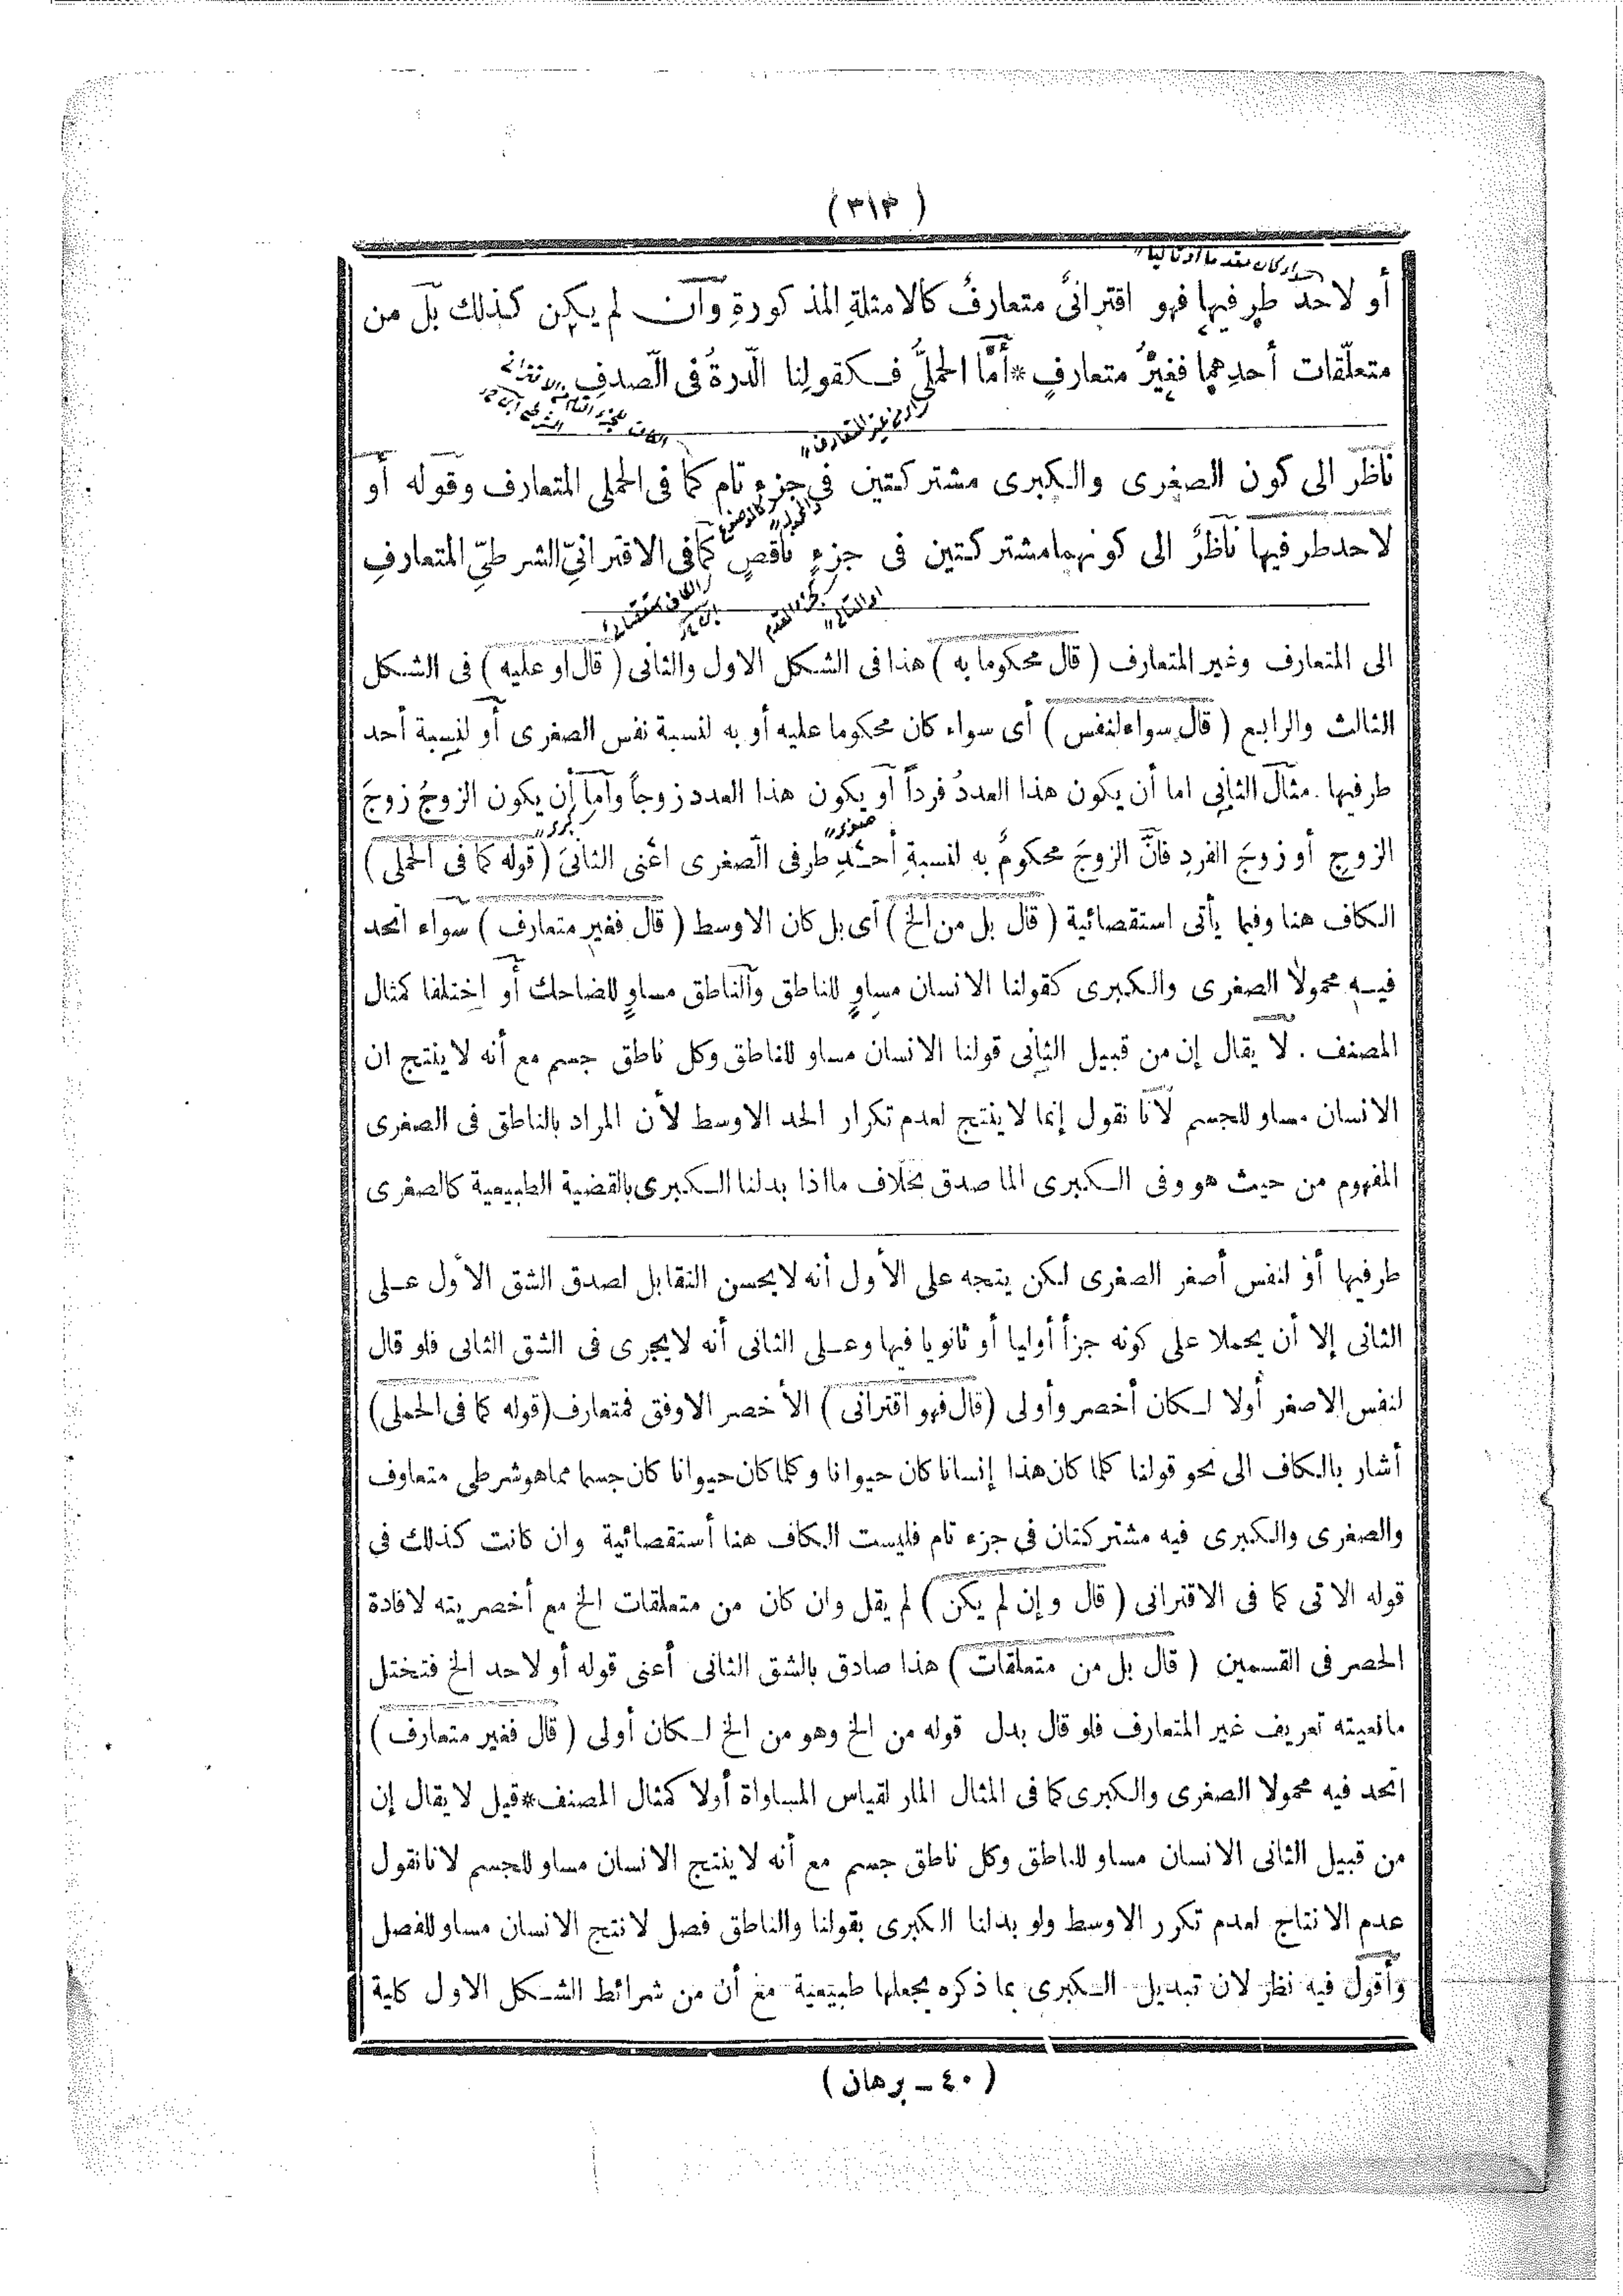 (٣١٣)
أو لاحد طرفيها فهو اقترانىٌّ متعارفٌ كالامثلةِ المذكورةِ وان لم يكن كذلك بل من
متعلّقات أحدِهما فغيرُ متعارفٍ*أمَّا الحملىُّ فكقولِنا الدّرةُ فى الصّدفِ
زاد غير المتعارف
ناظر الى كون الصغرى والكبرى مشتركتين فى جزء تام كما فى الحملى المتعارف وقوله أو
لاحد طرفيها ناظرٌ الى كونهما مشتركتين فى جزءٍ ناقصٍ كما فى الاقترانىِّ الشرطىِّ المتعارفِ
الى المتعارف وغير المتعارف (قال محكوما به) هذا فى الشكل الاول والثانى (قال او عليه) فى الشكل
الثالث والرابع (قال سواء لنفس) أى سواء كان محكوما عليه أو به لنسبة نفس الصغرى أو لنسبة أحد
طرفيها. مثال الثانى اما أن يكون هذا العددُ فرداً أو يكون هذا العدد زوجاً وأما أن يكون الزوجُ زوجَ
صغرى كبرى
الزوج أو زوجَ الفردِ فانَّ الزوجَ محكومٌ به لنسبةِ أحدِ طرفى الصغرى اعنى الثانىَ (قوله كما فى الحملى)
الكاف هنا وفيما يأتى استقصائية (قال بل من الخ) أى بل كان الاوسط (قال فغير متعارف) سواء اتحد
فيه محمولا الصغرى والكبرى كقولنا الانسان مساوٍ للناطق والناطق مساوٍ للضاحك أو اختلفا كمثال
المصنف. لا يقال إن من قبيل الثانى قولنا الانسان مساو للناطق وكل ناطق جسم مع أنه لا ينتج ان
الانسان مساو للجسم لأنا نقول إنما لا ينتج لعدم تكرار الحد الاوسط لأن المراد بالناطق فى الصغرى
المفهوم من حيث هو وفى الكبرى الما صدق بخلاف ما اذا بدلنا الكبرى بالقضية الطبيعية كالصغرى
طرفيها أو لنفس أصغر الصغرى لكن يتجه على الأول أنه لا يحسن التقابل لصدق الشق الأول على
الثانى إلا أن يحملا على كونه جزأ أوليا أو ثانويا فيها وعلى الثانى أنه لا يجرى فى الشق الثانى فلو قال
لنفس الاصغر أولا لكان أخصر وأولى (قال فهو اقترانى) الأخصر الاوفق فمتعارف (قوله كما فى الحملى)
أشار بالكاف الى نحو قولنا كلما كان هذا إنسانا كان حيوانا وكلما كان حيوانا كان جسما مما هو شرطى متعاوف
والصغرى والكبرى فيه مشتركتان فى جزء تام فليست الكاف هنا أستقصائية وان كانت كذلك فى
قوله الاتى كما فى الاقترانى (قال وإن لم يكن) لم يقل وان كان من متعلقات الخ مع أخصريته لافادة
الحصر فى القسمين (قال بل من متعلقات) هذا صادق بالشق الثانى أعنى قوله أو لاحد الخ فتختل
مانعيته تعريف غير المتعارف فلو قال بدل قوله من الخ وهو من الخ لكان أولى (قال فغير متعارف)
اتحد فيه محمولا الصغرى والكبرى كما فى المثال المار لقياس المساواة أولا كمثال المصنف*قيل لا يقال إن
من قبيل الثانى الانسان مساو للناطق وكل ناطق جسم مع أنه لا ينتج الانسان مساو للجسم لانا نقول
عدم الانتاج لعدم تكرر الاوسط ولو بدلنا الكبرى بقولنا والناطق فصل لانتج الانسان مساو للفصل
وأقول فيه نظر لان تبديل الكبرى بما ذكره يجعلها طبيعية مع أن من شرائط الشكل الاول كلية
(٤٠ - برهان)